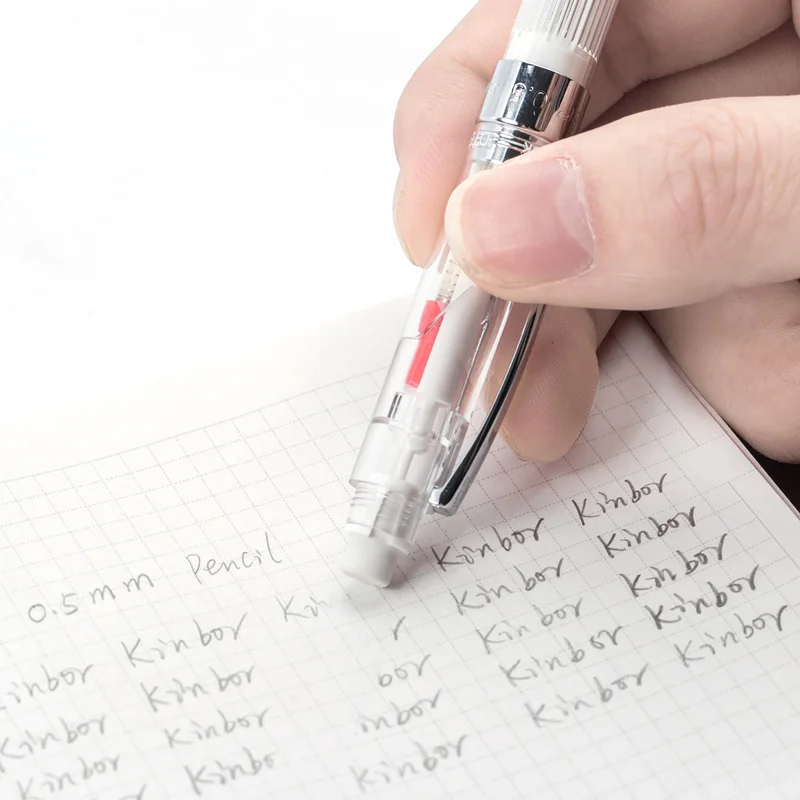 0.5mm Pencil
inbor Kinbor Kin Kinbor Kinbor
Kinbor Kinbor r Kinbor Kinbor
Kinbor Kinbor bor Kinbor Kinbor
Kinbo inbor Kinbor Kinbor
Kinbor Kinbor Kinbor